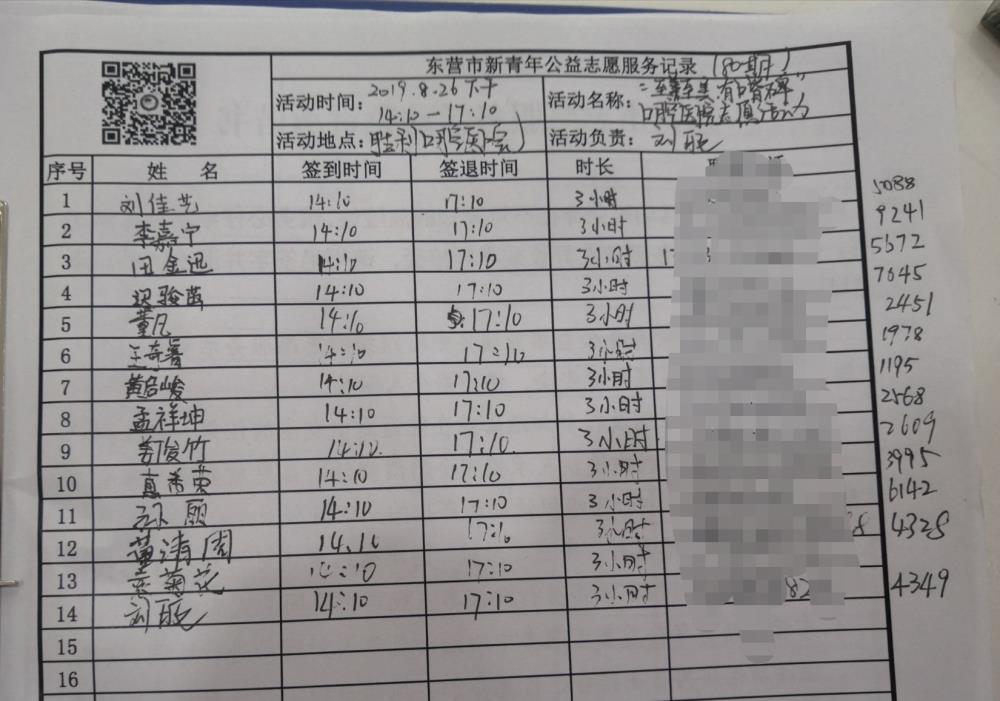 东营市新青年公益志愿服务记录(80期)
活动时间: 2019.8.26下午 14:10-17:10
活动名称: 有口皆碑" 口腔医院志愿活动
活动地点: 胜利口腔医院
活动负责: 刘
序号 姓 名 签到时间 签退时间 时长
1 刘佳艺 14:10 17:10 3小时 5088
2 李嘉宁 14:10 17:10 3小时 9241
3 田金迅 14:10 17:10 3小时 5572
4 骏 14:10 17:10 3小时 7045
5 董凡 14:10 17:10 3小时 2451
6 王奇睿 14:10 17:10 3小时 1978
7 黄启峻 14:10 17:10 3小时 1195
8 孟祥坤 14:10 17:10 3小时 2568
9 俊竹 14:10. 17:10. 3小时 2609
10 袁希荣 14:10 17:10 3小时 3995
11 丽 14:10 17:10 3小时 6142
12 董清周 14:10 17:10 3小时 4328
13 菊花 14:10 17:10 3小时
14 刘 14:10 17:10 3小时 82 4349
15
16